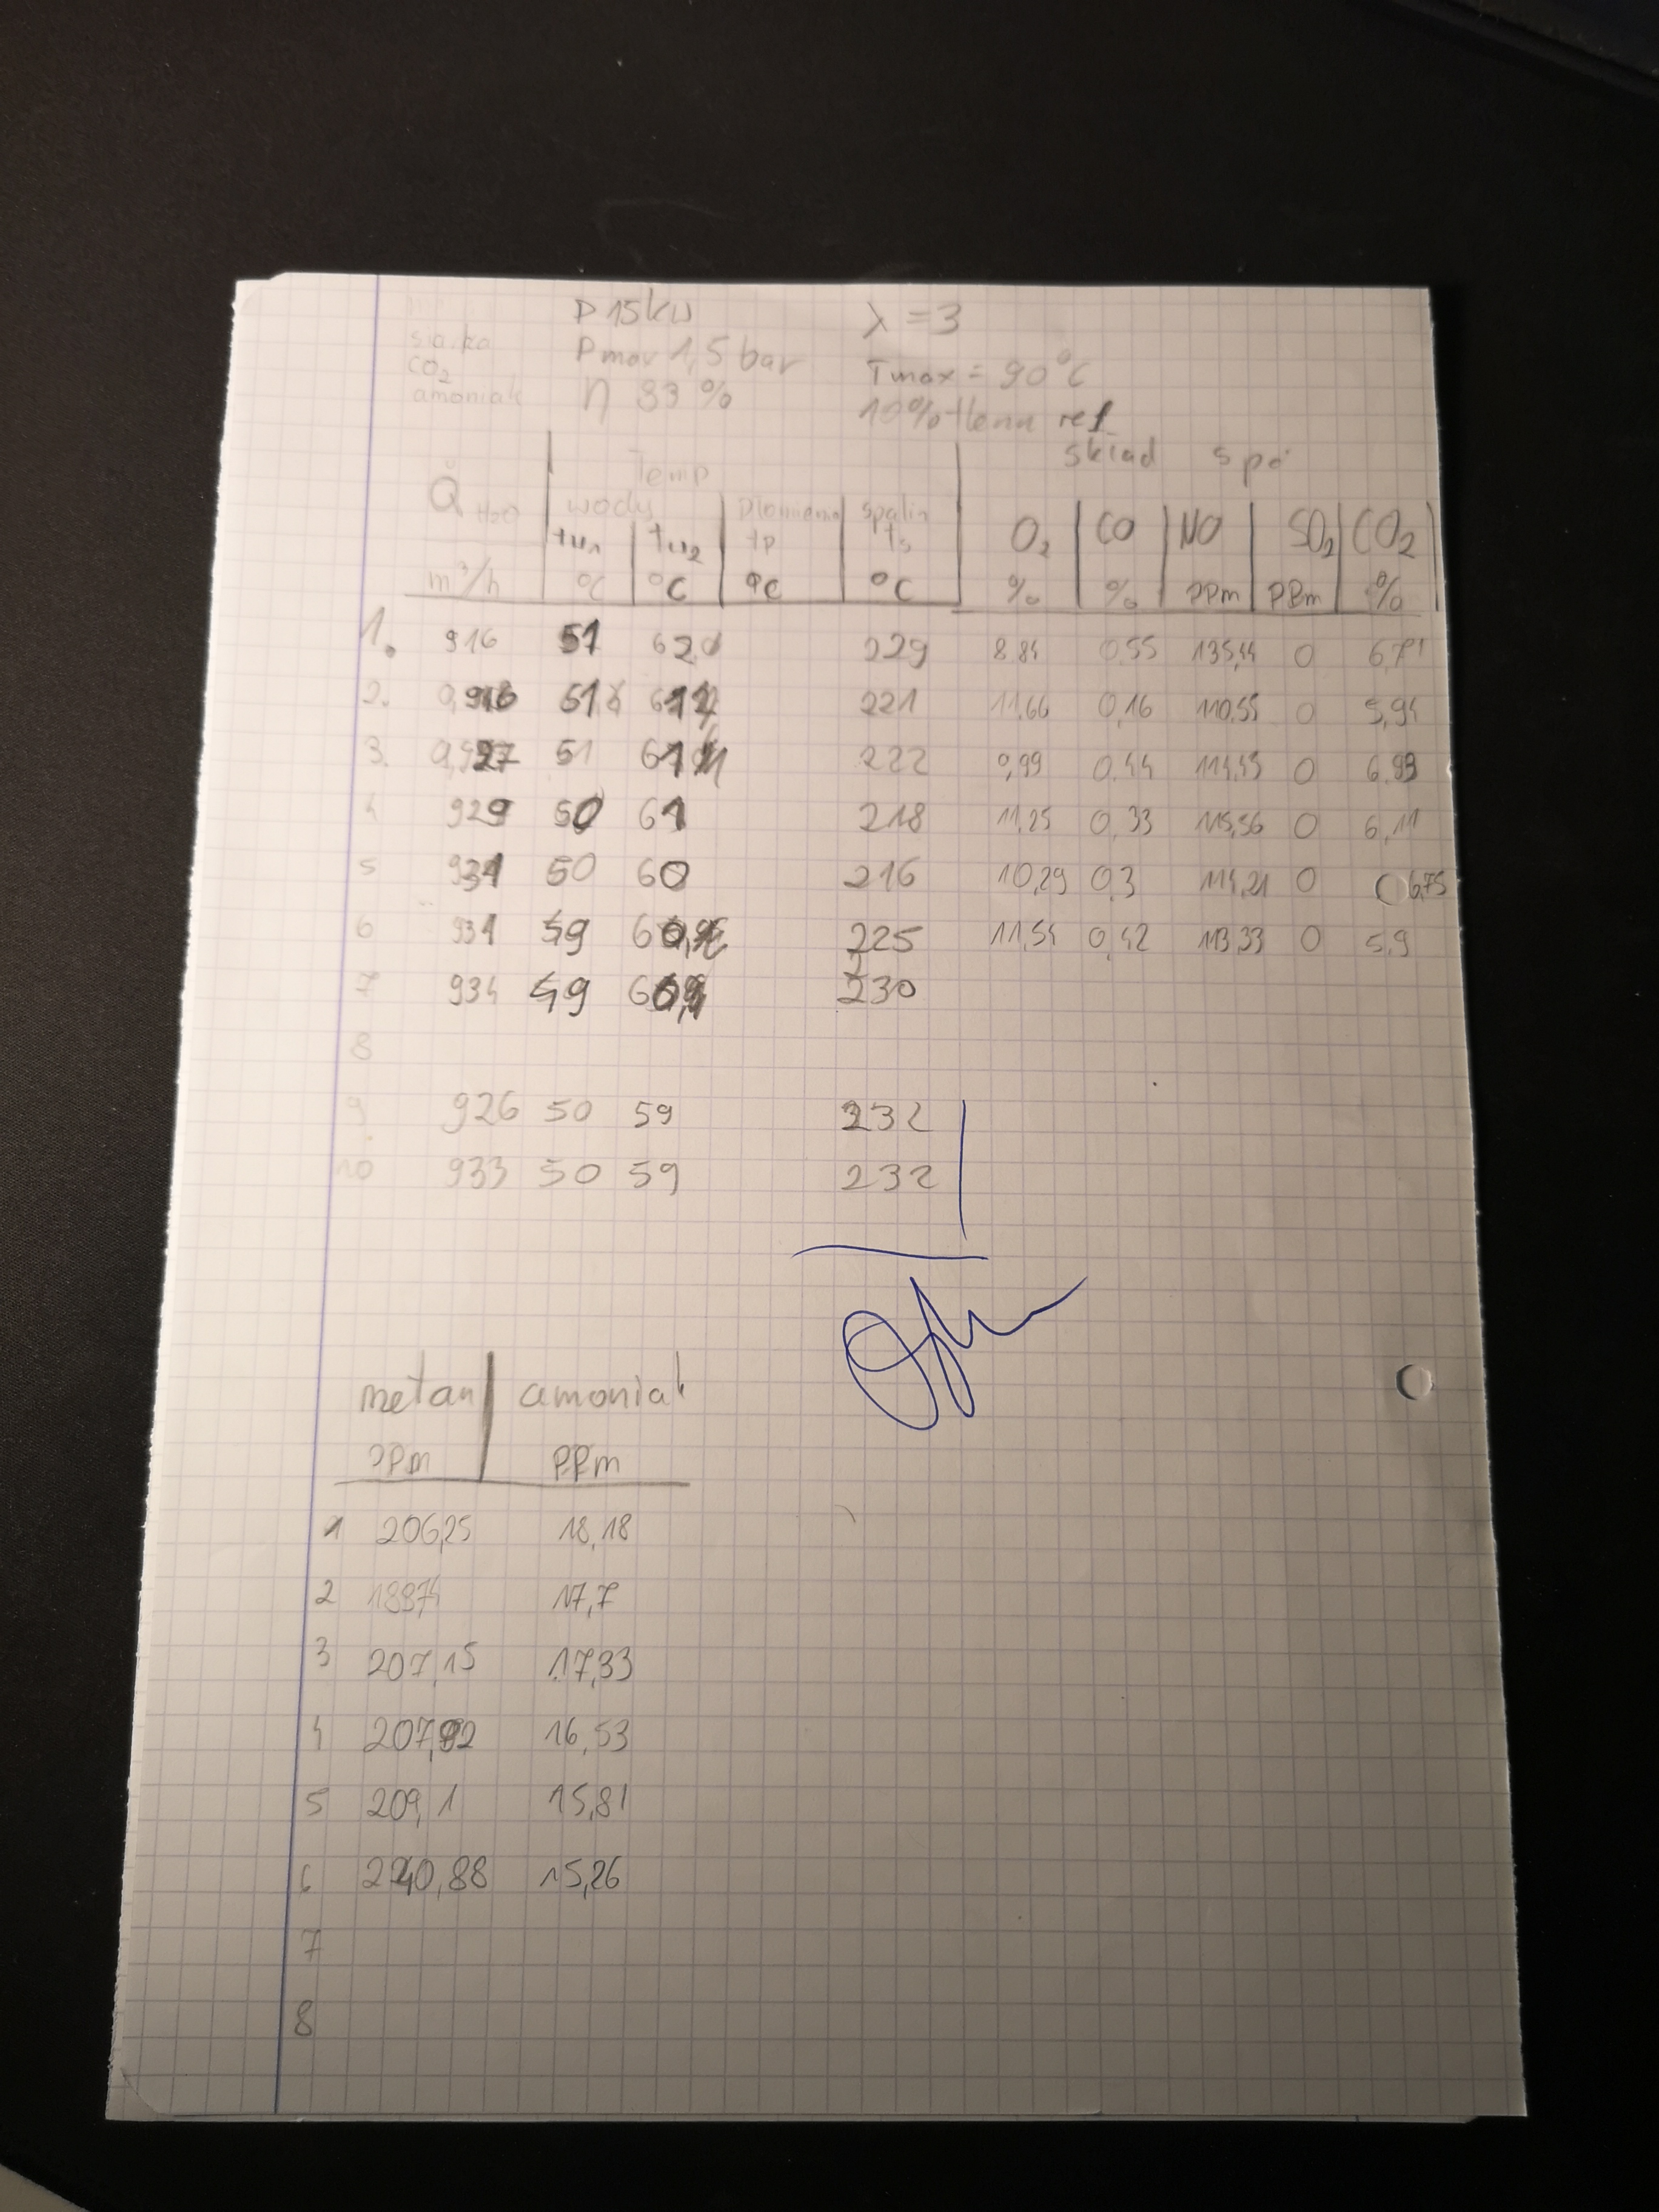 P 15kW λ = 3
siarka Pmax 1,5 bar
CO₂ Tmax = 90°C
amoniak η 83 % 10% tlenu ref
Temp skład spa
Q̇ H₂O wody płomienia spalin
tw₁ tw₂ tp ts O₂ CO NO SO₂ CO₂
m³/h °C °C °C °C % % ppm ppm %
1. 916 51 62 229 8,84 0,55 135,44 0 6,71
2. 0,916 51 61 221 11,66 0,16 110,55 0 5,94
3. 0,927 51 61 222 9,99 0,44 114,43 0 6,93
4 929 50 61 218 11,25 0,33 115,56 0 6,11
5 931 50 60 216 10,29 0,3 114,21 0 6,75
6 931 49 60 225 11,54 0,42 113,33 0 5,9
7 934 49 60 230
8
9 926 50 59 232
10 933 50 59 232
metan amoniak
ppm ppm
1 206,25 18,18
2 17,7
3 207,15 17,33
4 207,92 16,53
5 209,1 15,81
6 15,26
7
8